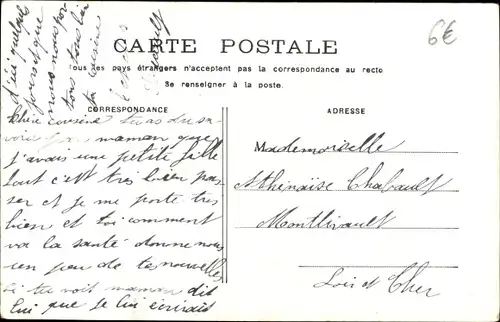 6€
d'ici quelque
CARTE POSTALE
Tous les pays étrangers n'acceptent pas la correspondance au recto
Se renseigner à la poste.
CORRESPONDANCE
ADRESSE
Chère cousine tu as du sa
voir par maman que
j'avais une petite fille
tout c'est très bien pas
ser et je me porte très
bien et toi comment
va la santé donne nous
un peu de tes nouvelles
si tu voit maman dit
lui que je lui écrirait
Mademoiselle
Athénaïse Chabault
Monthivault
Loir et Cher